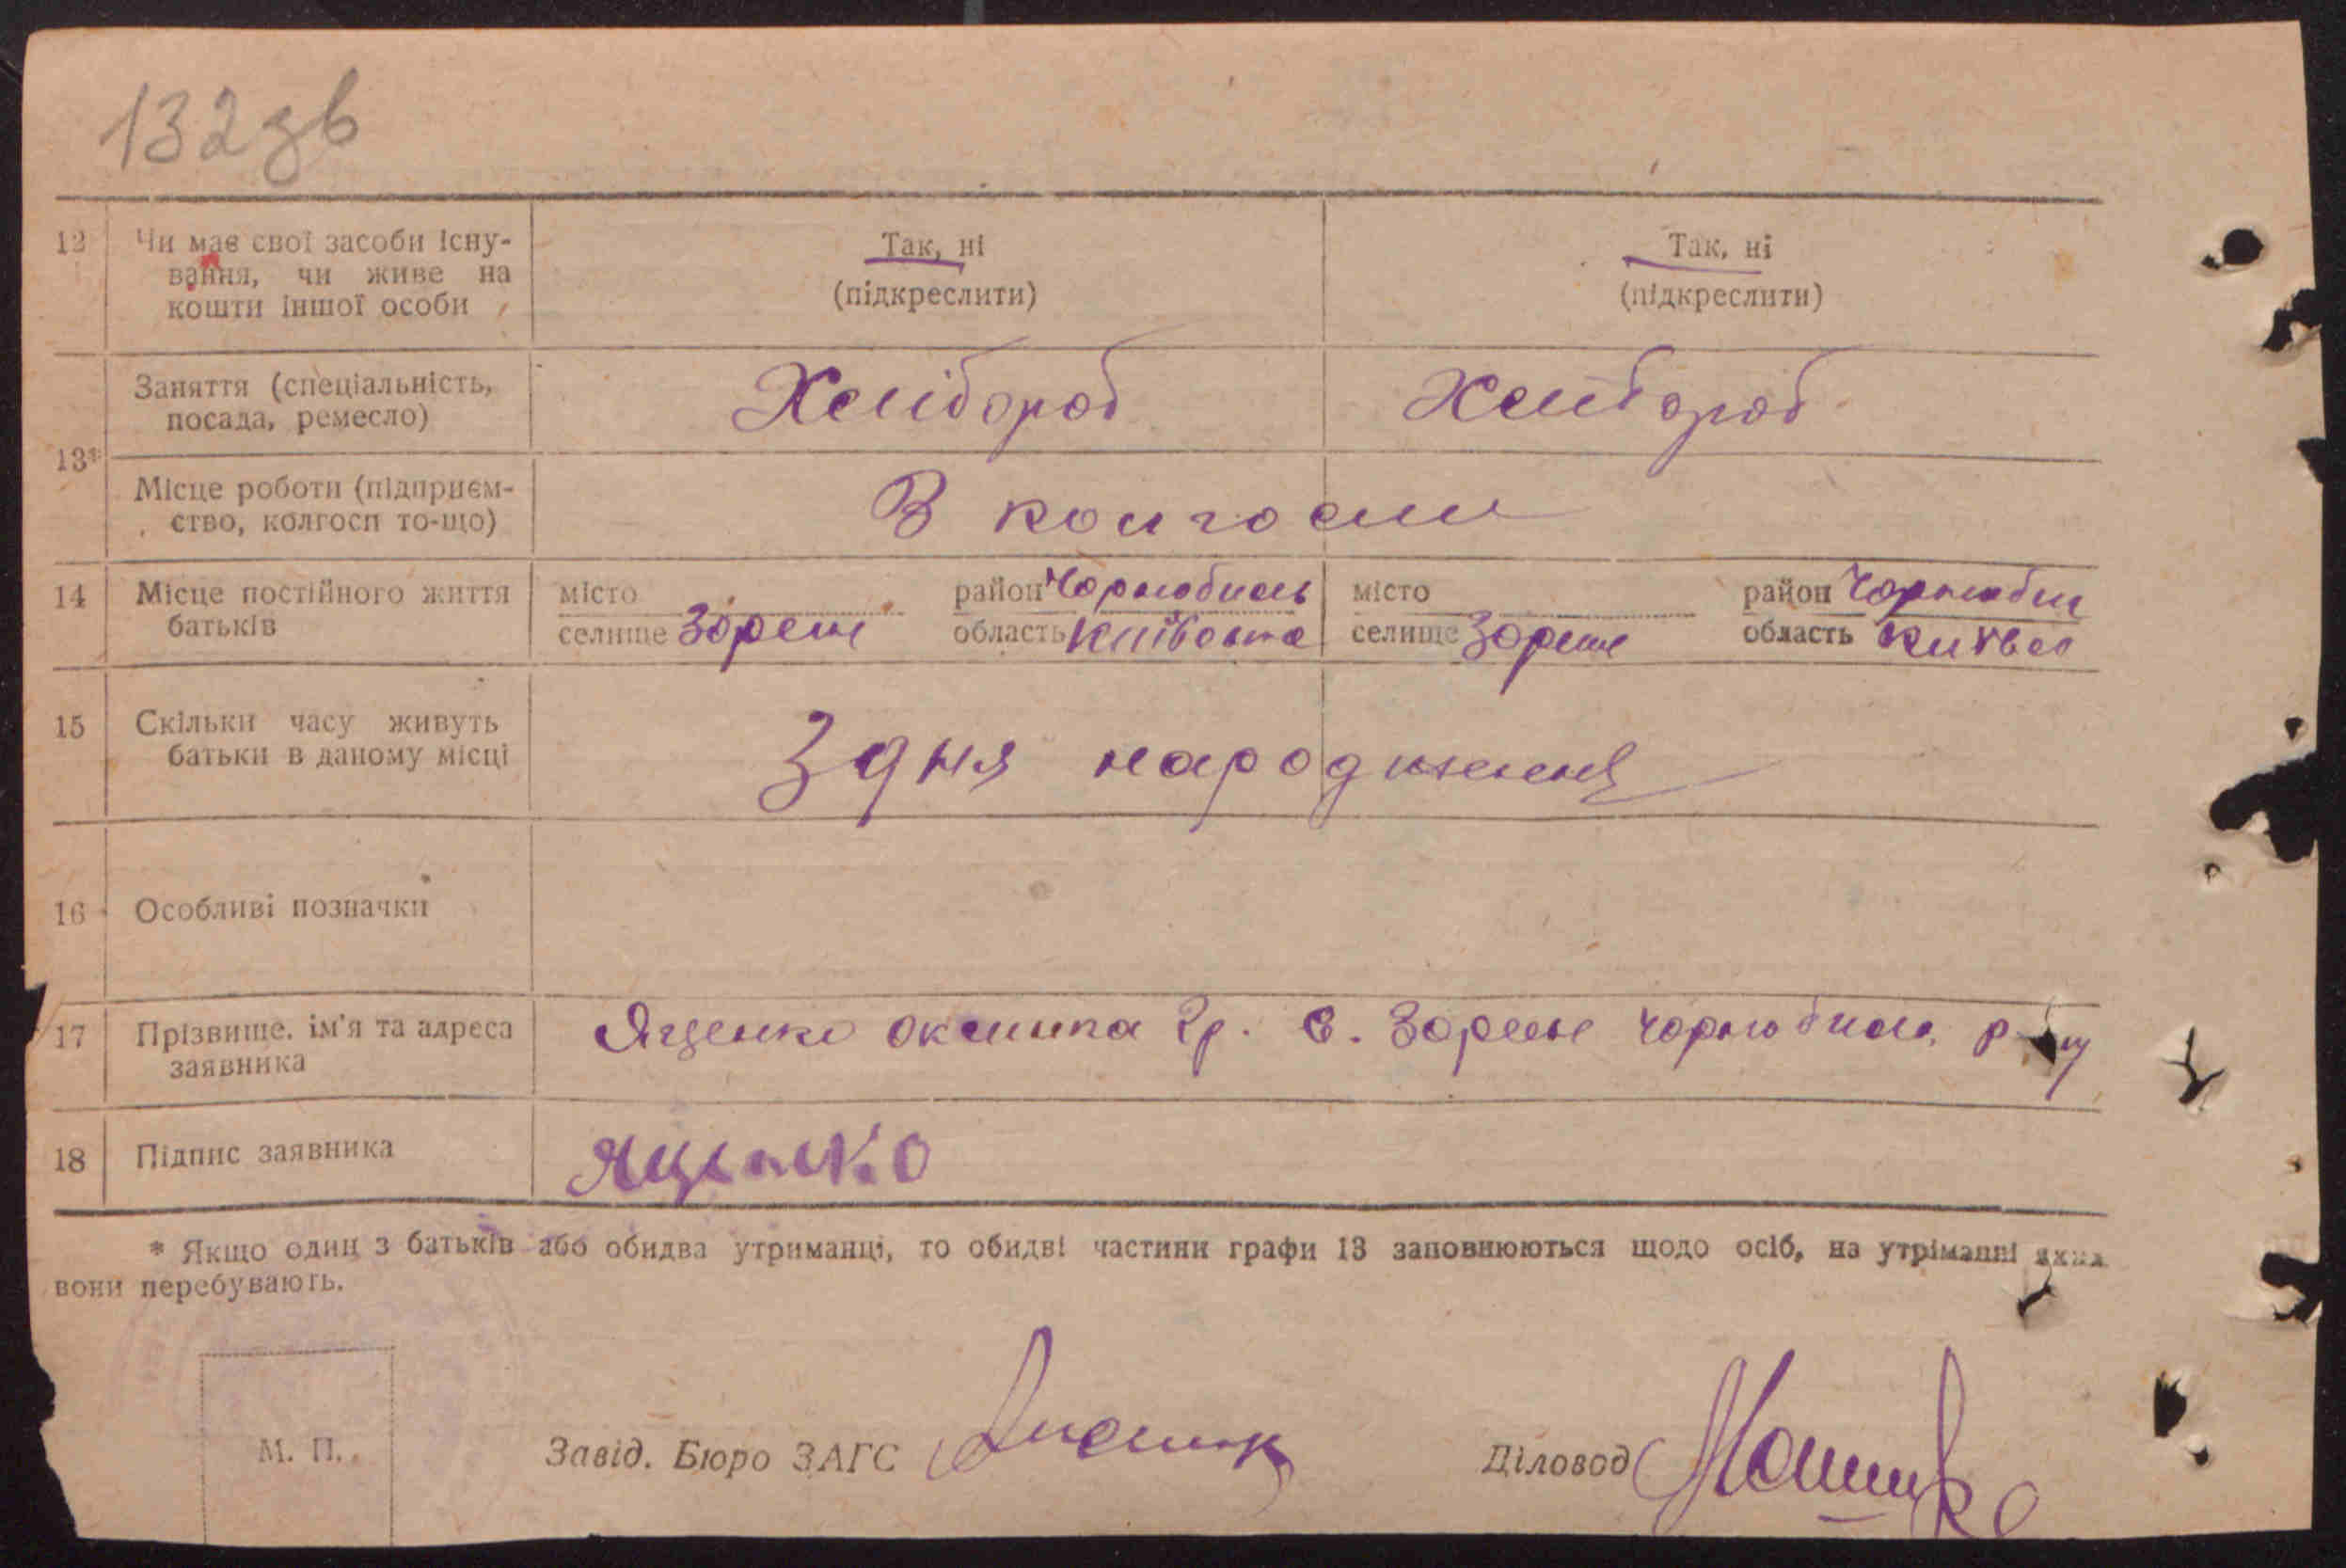 132 зв
12 Чи має свої засоби існу- Так, ні Так, ні
вання, чи живе на (підкреслити) (підкреслити)
кошти іншої особи
Заняття (спеціальність, Хлібороб Хлібороб
посада, ремесло)
13*
Місце роботи (підприєм- В колгоспи
ство, колгосп то-що)
14 Місце постійного життя місто район Чорнобиль місто район Чорнобил
батьків селище Зорене область Київська селище Зорене область
15 Скільки часу живуть З дня народження
батьки в даному місці
16 Особливі позначки
17 Прізвище, ім'я та адреса Ященко Гр. с. Зорене Чорнобил.
заявника
18 Підпис заявника Ященко
* Якщо один з батьків або обидва утриманці, то обидві частини графи 13 заповнюються щодо осіб, на утріманні яких
вони перебувають.
М. П. Завід. Бюро ЗАГС Діловод